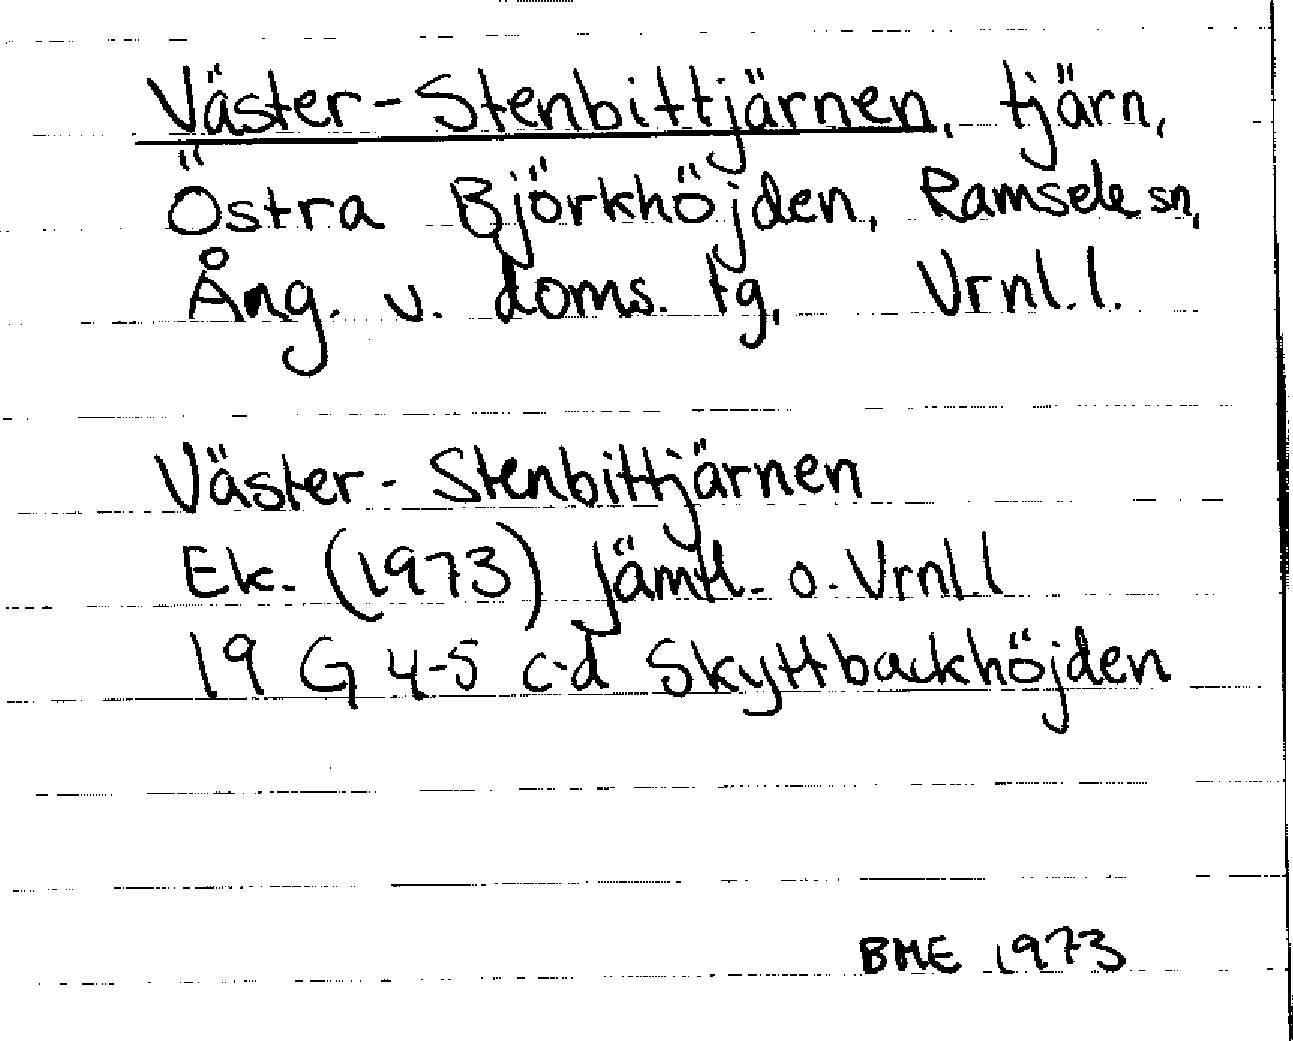 Väster-Stenbittjärnen, tjärn,
Östra Björkhöjden, Ramsele sn,
Ång. v. doms. tg, Vrnl.l.
Väster-Stenbittjärnen
Ek. (1973) Jämtl. o. Vrnl.l
19 G 4-5 c-d Skyttbackhöjden
BME 1973